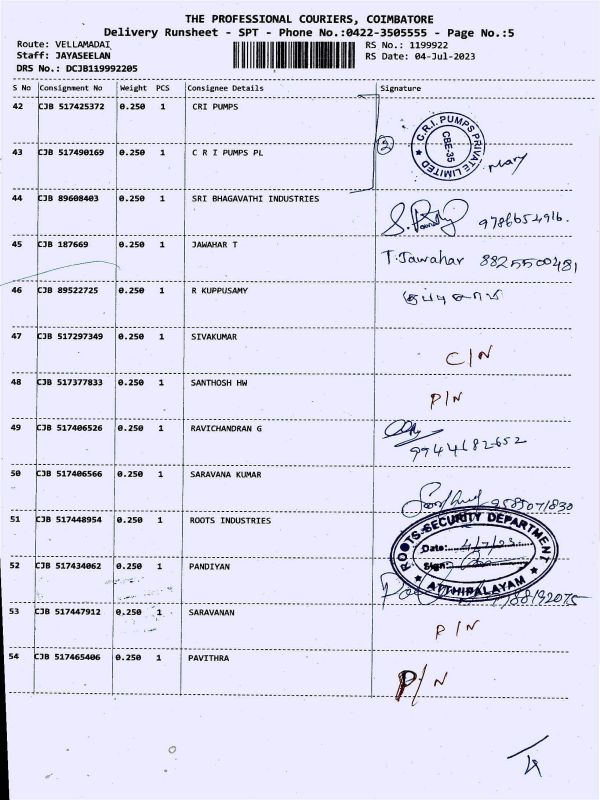 THE PROFESSIONAL COURIERS, COIMBATORE
Delivery Runsheet - SPT - Phone No.:0422-3505555 - Page No.:5
Route: VELLAMADAI RS No.: 1199922
Staff: JAYASEELAN RS Date: 04-Jul-2023
DRS No.: DCJB119992205
S No Consignment No Weight PCS Consignee Details Signature
42 CJB 517425372 0.250 1 CRI PUMPS
C.R.I. PUMPS PRIVATE LIMITED ★ CBE-35
2
43 CJB 517490169 0.250 1 C R I PUMPS PL
Mary
44 CJB 89608403 0.250 1 SRI BHAGAVATHI INDUSTRIES
9786654916.
45 CJB 187669 0.250 1 JAWAHAR T
T. Jawahar 8825500481
46 CJB 89522725 0.250 1 R KUPPUSAMY
குப்புசாமி
47 CJB 517297349 0.250 1 SIVAKUMAR
C/N
48 CJB 517377833 0.250 1 SANTHOSH HW
P/N
49 CJB 517406526 0.250 1 RAVICHANDRAN G
9944182652
50 CJB 517406566 0.250 1 SARAVANA KUMAR
9585071830
51 CJB 517448954 0.250 1 ROOTS INDUSTRIES
ROOTS-SECURITY DEPARTMENT
Date: 4/7/23
Sign:
★ ATTHIPALAYAM ★
52 CJB 517434062 0.250 1 PANDIYAN
88192075
53 CJB 517447912 0.250 1 SARAVANAN
P/N
54 CJB 517465406 0.250 1 PAVITHRA
P/N